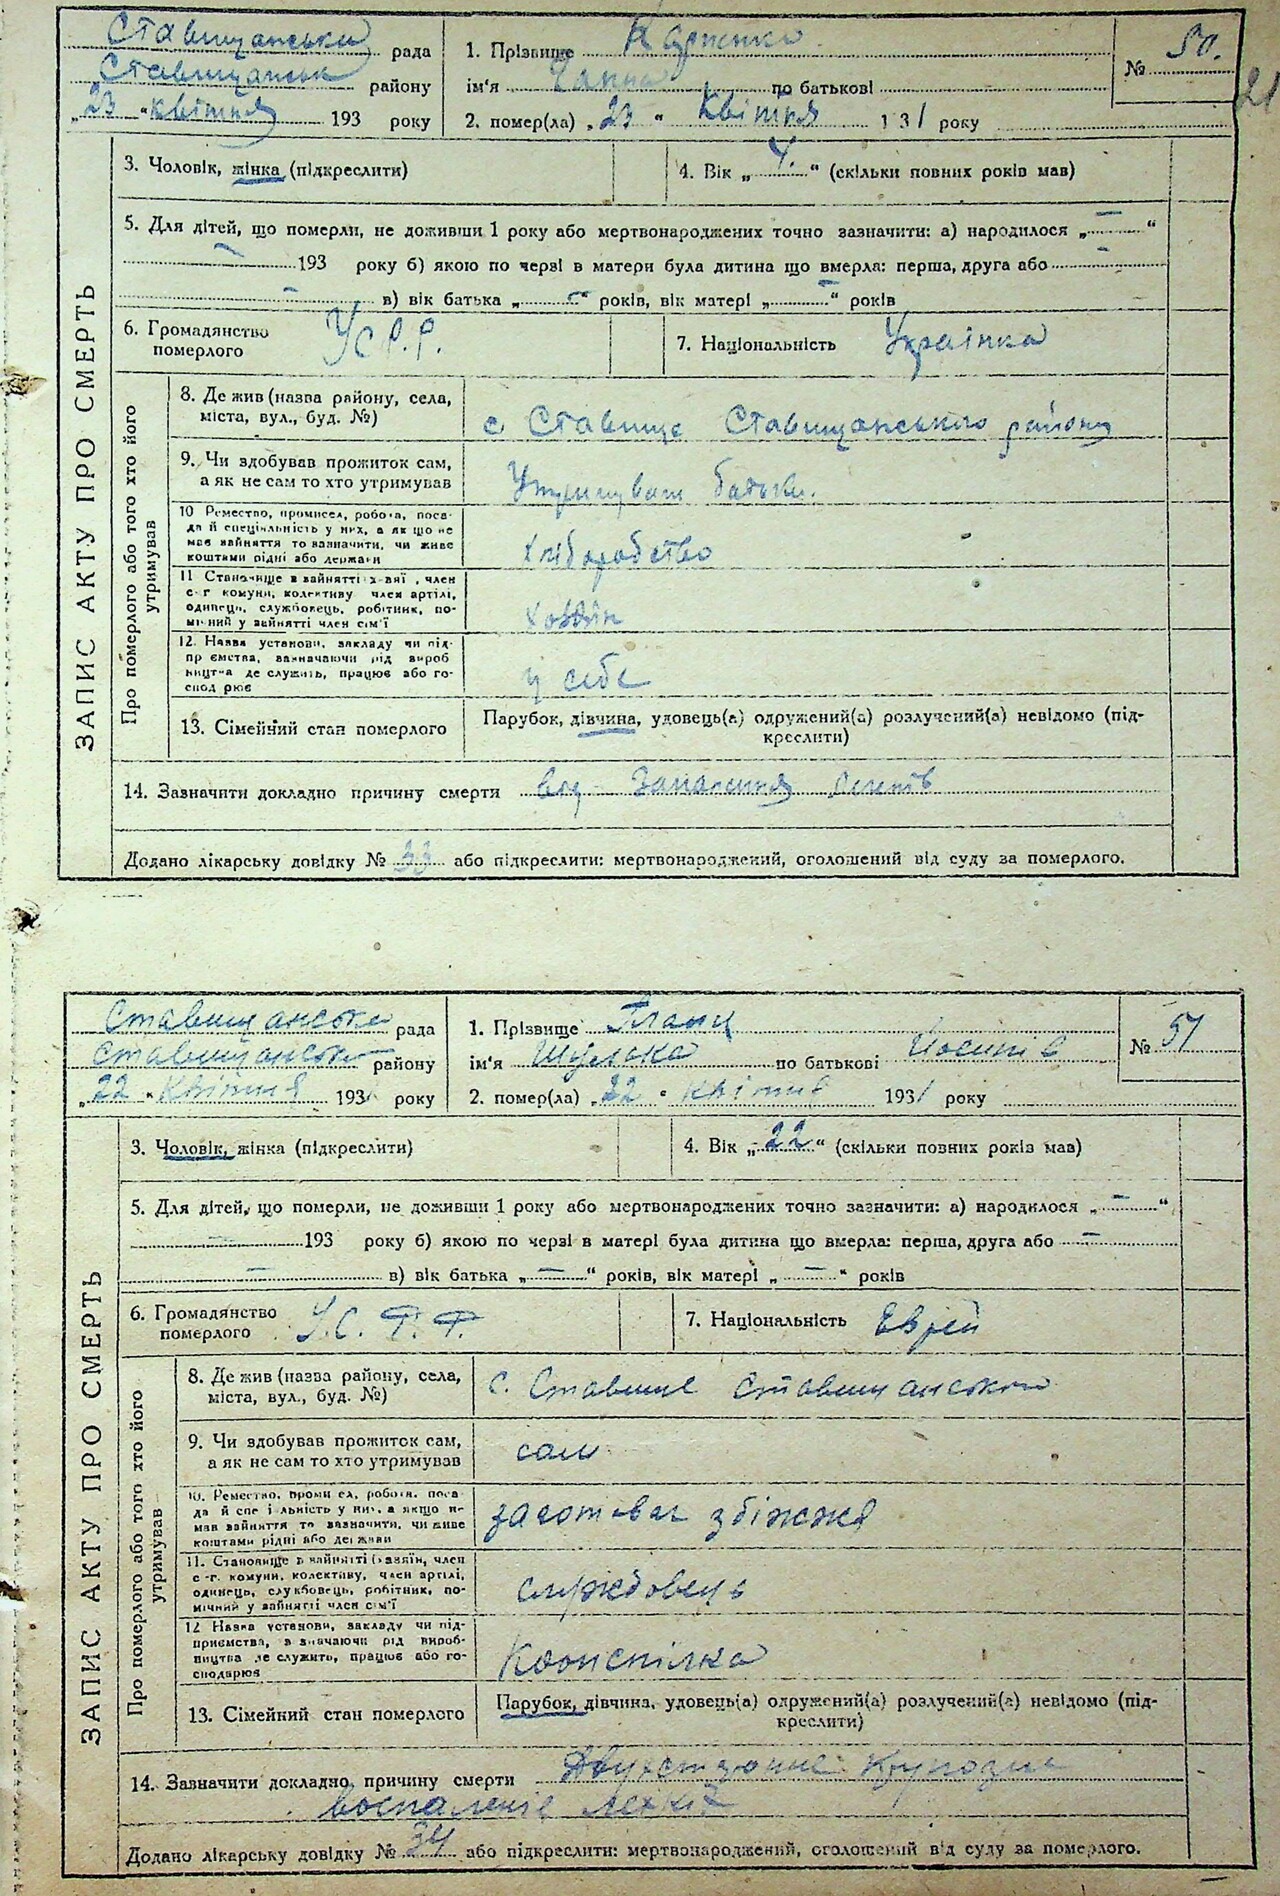 Ставищанська рада
Ставищанськ району
„23“ квітня 193 року
1. Прізвище
ім'я Ганна по батькові
2. помер(ла) „23“ Квітня 1931 року
№ 50.
21
ЗАПИС АКТУ ПРО СМЕРТЬ
3. Чоловік, жінка (підкреслити)
4. Вік „4.“ (скільки повних років мав)
5. Для дітей, що померли, не доживши 1 року або мертвонароджених точно зазначити: а) народилося „—“
— 193 року б) якою по черзі в матери була дитина що вмерла: перша, друга або —
— в) вік батька „—“ років, вік матері „—“ років
6. Громадянство померлого У С Р. Р.
7. Національність Українка
Про померлого або того хто його утримував
8. Де жив (назва району, села,
міста, вул., буд. №)
с Ставище Ставищанського району
9. Чи здобував прожиток сам,
а як не сам то хто утримував
Утримував батьки.
10 Ремество, промисел, робота, поса-
да й спеціальність у них, а як що не
мав зайняття то зазначити, чи живе
коштами рідні або держави
хліборобство
11 Становище в зайнятті х-зяї , член
с-г комуни, колективу член артілі,
одинець, службовець, робітник, по-
мічний у зайнятті член сім'ї
хазяїн
12. Назва установи, закладу чи під-
пр ємства, зазначаючи рід вироб
ництва де служить, працює або го-
спод рює
у себе
13. Сімейний стан померлого
Парубок, дівчина, удовець(а) одружений(а) розлучений(а) невідомо (під-
креслити)
14. Зазначити докладно причину смерти від запалення легенів
Додано лікарську довідку № 33 або підкреслити: мертвонароджений, оголошений від суду за померлого.
Ставищанська рада
Ставищанськ району
„22“ Квітня 1931 року
1. Прізвище
ім'я по батькові Йосипів
2. помер(ла) „22“ квітня 1931 року
№ 51
ЗАПИС АКТУ ПРО СМЕРТЬ
3. Чоловік, жінка (підкреслити)
4. Вік „22“ (скільки повних років мав)
5. Для дітей, що померли, не доживши 1 року або мертвонароджених точно зазначити: а) народилося „—“
193 року б) якою по черзі в матері була дитина що вмерла: перша, друга або —
— в) вік батька „—“ років, вік матері „—“ років
6. Громадянство померлого У. С. Р. Р.
7. Національність Еврей
Про померлого або того хто його утримував
8. Де жив (назва району, села,
міста, вул., буд. №)
с. Ставище Ставищанськом
9. Чи здобував прожиток сам,
а як не сам то хто утримував
сам
10. Ремество, проми ел, робота, поса-
да й спе і льність у них, а якщо не
мав зайняття то зазначити, чи живе
коштами рідні або держави
заготовач збіжжя
11. Становище в зайнятті (хазяїн, член
с-г. комуни, колективу, член артілі,
одинець, службовець, робітник, по-
мічний у зайнятті член сім'ї
службовець
12 Назва установи, закладу чи під-
приємства, з значаючи рід вироб-
ництва де служить, працює або го-
сподарює
Коопспілка
13. Сімейний стан померлого
Парубок, дівчина, удовець(а) одружений(а) розлучений(а) невідомо (під-
креслити)
14. Зазначити докладно причину смерти Двухстороне крупозне
воспаление легких
Додано лікарську довідку № 34 або підкреслити: мертвонароджений, оголошений від суду за померлого.